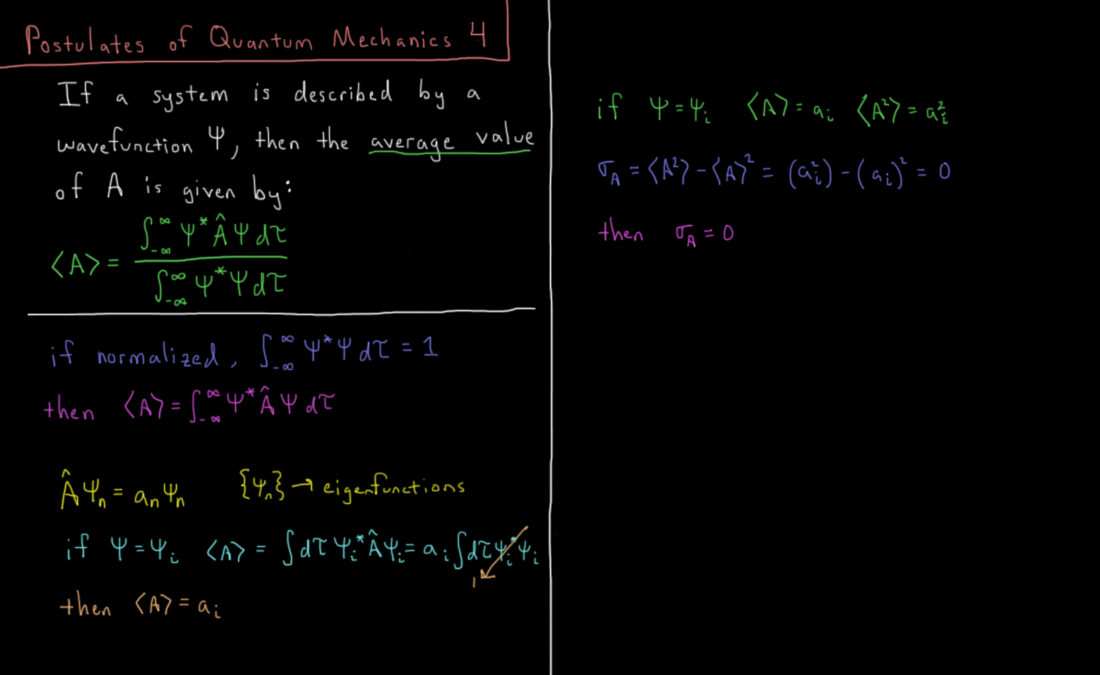 Postulates of Quantum Mechanics 4
If a system is described by a
wavefunction Ψ, then the average value
of A is given by:
⟨A⟩ = ∫_{-∞}^{∞} Ψ* Â Ψ dτ / ∫_{-∞}^{∞} Ψ* Ψ dτ
if normalized, ∫_{-∞}^{∞} Ψ* Ψ dτ = 1
then ⟨A⟩ = ∫_{-∞}^{∞} Ψ* Â Ψ dτ
Â Ψ_n = a_n Ψ_n {Ψ_n} → eigenfunctions
if Ψ = Ψ_i ⟨A⟩ = ∫dτ Ψ_i* Â Ψ_i = a_i ∫dτ Ψ_i* Ψ_i
1
then ⟨A⟩ = a_i
if Ψ = Ψ_i ⟨A⟩ = a_i ⟨A²⟩ = a_i²
σ_A = ⟨A²⟩ - ⟨A⟩² = (a_i²) - (a_i)² = 0
then σ_A = 0